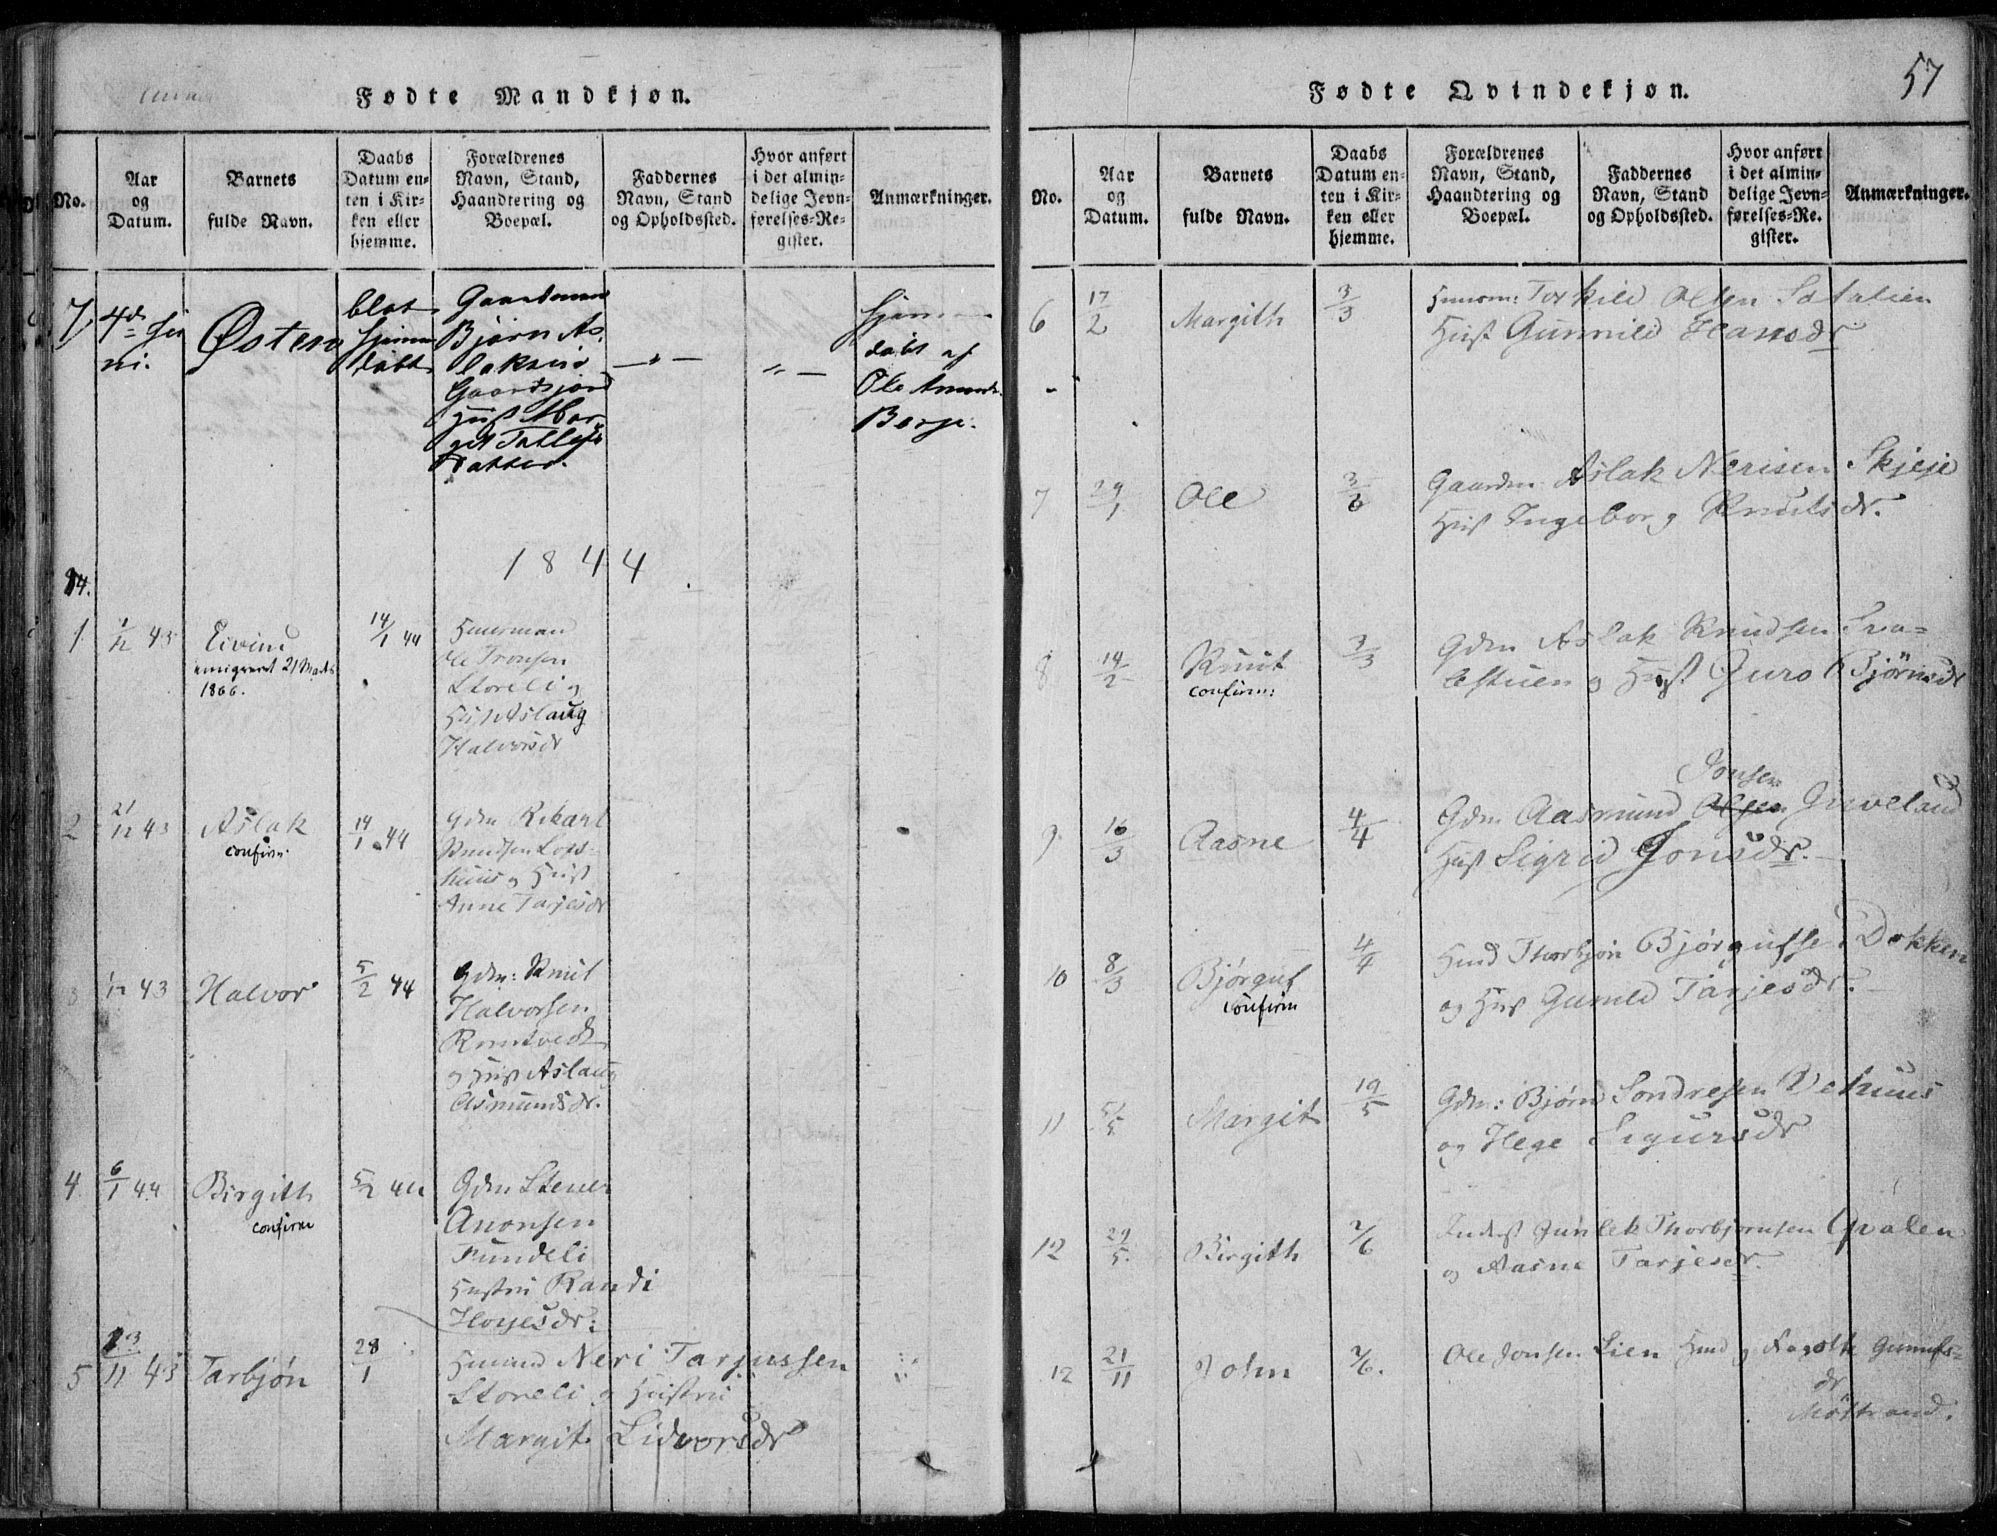 57
Fødte Mandkjøn.
No.
Aar
og
Datum.
Barnets
fulde Navn.
Daabs
Datum en-
ten i Kir-
ken eller
hjemme.
Forældrenes
Navn, Stand,
Haandtering og
Boepæl.
Faddernes
Navn, Stand
og Opholdssted.
Hvor anført
i det almin-
delige Jevn-
førelses-Re-
gister.
Anmærkninger.
7.
Østen
blot
hjemme
døbt
Gaardmand
Bjørn As-
laksen
Hust Mar-
git
Datter.
hjemme
døbt af
Ole
Borge.
1844
1
1/12 43
Eivind
emigreret 21 Marts
1866.
14/1 44
Huusmand
Ole Tronsen
Storeli og
Hust Aslaug
Halvorsdr
2
21/12 43
Aslak
confirm.
14/1 44
Gdm Rikart
Knudsen Lofs-
huus og Hust
Anne Tarjesdr
3
1/12 43
Halvor
5/2 44
Gdm: Knut
Halvorsen
og Hust Aslaug
Asmundsdr.
4
6/1 44
Birgith
confirm
5/2 44
Gdm Stener
Anonsen
Fundeli
Hustru Randi
5
23/11 43
Tarbjøn
28/1
Huusmd Neri Tarjussen
Storeli og Hustru
Margit Lidvorsdr
Fødte Qvindekjøn.
No.
Aar
og
Datum.
Barnets
fulde Navn.
Daabs
Datum en-
ten i Kir-
ken eller
hjemme.
Forældrenes
Navn, Stand,
Haandtering og
Boepæl.
Faddernes
Navn, Stand
og Opholdssted.
Hvor anført
i det almin-
delige Jevn-
førelses-Re-
gister.
Anmærkninger.
6
17/2
Margith
3/3
Huusm: Torkild Olsen
Hust Gunnild Hansdr
7
29/1
Ole
Gaardm: Aslak Nerisen Skjeje
Hust Ingeborg Knutsdr.
8
14/2
Knut
confirm:
3/3
Gdm Aslak Knudsen
og Hust Guro Bjørnsdr
9
16/3
Aasne
4/4
Jonsen
Gdm Aasmund Olsen Gruveland
Hust Sigrid Jonsdr.
10
8/3
Bjørguf
confirm
4/4
Huusmd Thorbjøn Bjørgufse Dokken
og Hust Gunild Tarjesdr.
11
5/5
Margit
19/5
Gdm: Bjørn Sondresen Vehuus
og Hege Sigursdr
12
29/5
Birgith
2/6
Inderst Gunlek Thorbjørnsen Qvalen
og Aasne Tarjesdr.
12
21/11
John
2/6.
Ole Jonsen Lien Hmd og Aagoth Gunnufs-
dr
Møstrand.